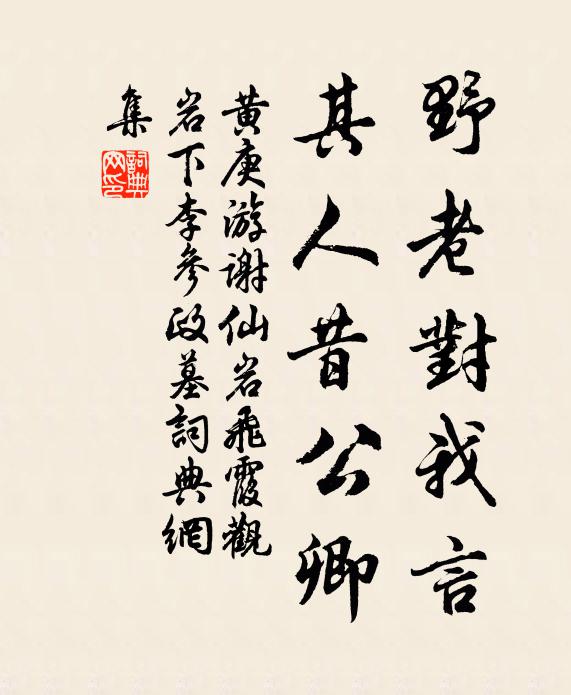 野老對我言
其人昔公卿
黄庚游谢仙岩飛霞觀
岩下李參政墓詞典網
集
詞典
网印